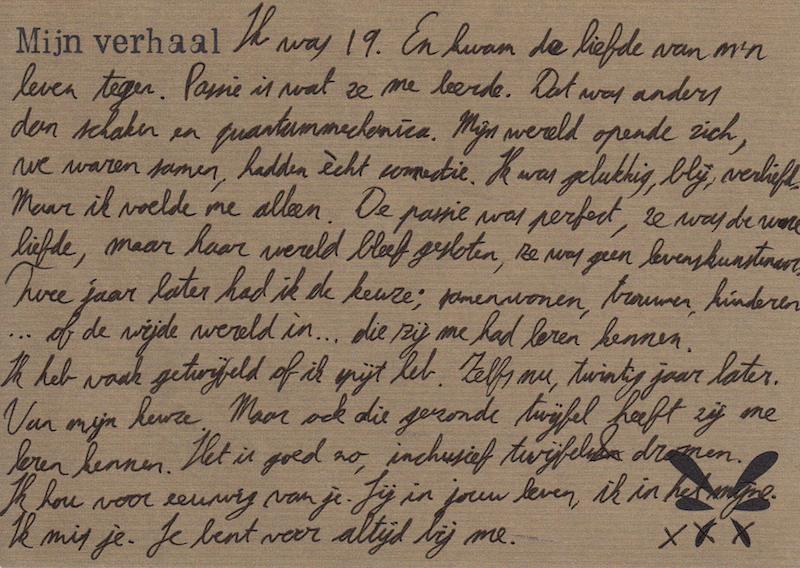 Mijn verhaal Ik was 19. En kwam de liefde van m'n
leven tegen. Passie is wat ze me leerde. Dat was anders
dan schaken en quantummechanica. Mijn wereld opende zich,
we waren samen, hadden ècht connectie. Ik was gelukkig, blij, verliefd.
Maar ik voelde me alleen. De passie was perfect, ze was de ware
liefde, maar haar wereld bleef gesloten, ze was geen levenskunstenaar.
Twee jaar later had ik de keuze; samenwonen, trouwen, kinderen
... of de wijde wereld in... die zij me had leren kennen.
Ik heb vaak getwijfeld of ik spijt heb. Zelfs nu, twintig jaar later.
Van mijn keuze. Maar ook die gezonde twijfel heeft zij me
leren kennen. Het is goed zo, inclusief twijfel dromen.
Ik hou voor eeuwig van je. Jij in jouw leven, ik in het mijne.
Ik mis je. Je bent voor altijd bij me.
x x x